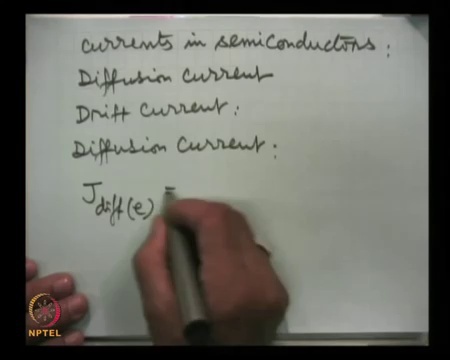 Currents in semiconductors:
Diffusion Current
Drift Current:
Diffusion Current:
J diff(e) =
NPTEL